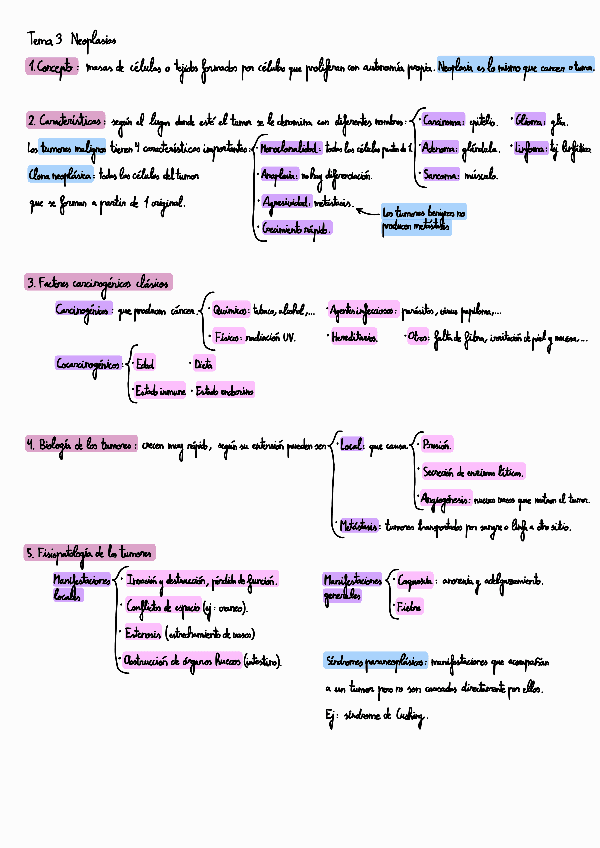 Tema 3 Neoplasias
1. Concepto: masas de células o tejidos formados por células que proliferan con autonomía propia. Neoplasia es lo mismo que cancer o tumor.
2. Características: según el lugar donde esté el tumor se le denomina con diferentes nombres:
· Carcinoma: epitelio. · Glioma: glía.
· Adenoma: glándula. · Linfoma: tej. linfático.
· Sarcoma: músculo.
Los tumores malignos tienen 4 características importantes:
· Monoclonalidad: todas las células parten de 1.
· Anaplasia: no hay diferenciación.
· Agresividad: metástasis.
· Crecimiento rápido.
Los tumores benignos no
producen metástasis
Clona neoplásica: todas las células del tumor
que se forman a partir de 1 original.
3. Factores carcinogénicos clásicos
Carcinogénicos: que producen cáncer.
· Químicos: tabaco, alcohol,... · Agentes infecciosos: parásitos, virus papiloma,...
· Físicos: radiación UV. · Hereditarios. · Otros: falta de fibra, irritación de piel y mucosa,...
Cocarcinogénicos:
· Edad · Dieta
· Estado inmune · Estado endocrino
4. Biología de los tumores: crecen muy rápido, según su extensión pueden ser
· Local: que causa
· Presión.
· Secreción de enzimas líticas.
· Angiogénesis: nuevos vasos que nutren el tumor.
· Metástasis: tumores transportados por sangre o linfa a otro sitio.
5. Fisiopatología de los tumores
Manifestaciones
locales
· Invasión y destrucción, pérdida de función.
· Conflictos de espacio (ej: craneo).
· Estenosis (estrechamiento de vasos)
· Obstrucción de órganos huecos (intestino).
Manifestaciones
generales
· Caquexia: anorexia y adelgazamiento.
· Fiebre
Síndromes paraneoplásicos: manifestaciones que acompañan
a un tumor pero no son causadas directamente por ellos.
Ej: síndrome de Cushing.